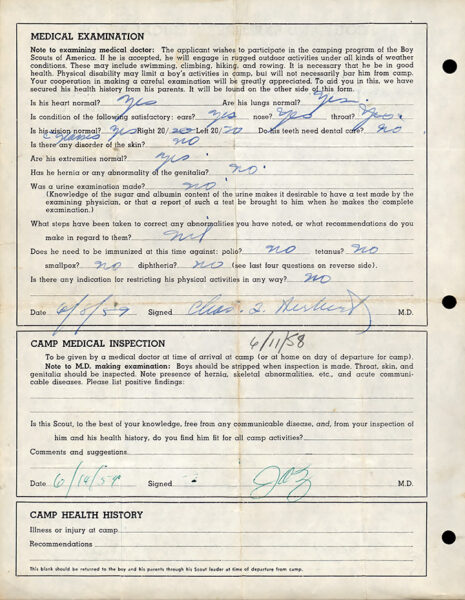 MEDICAL EXAMINATION
Note to examining medical doctor: The applicant wishes to participate in the camping program of the Boy
Scouts of America. If he is accepted, he will engage in rugged outdoor activities under all kinds of weather
conditions. These may include swimming, climbing, hiking, and rowing. It is necessary that he be in good
health. Physical disability may limit a boy's activities in camp, but will not necessarily bar him from camp.
Your cooperation in making a careful examination will be greatly appreciated. To aid you in this, we have
secured his health history from his parents. It will be found on the other side of this form.
Is his heart normal? Yes Are his lungs normal? Yes.
Is condition of the following satisfactory: ears? Yes nose? Yes throat? Yes.
Is his vision normal? Yes Right 20/20 Left 20/20 Do his teeth need dental care? No
Is there any disorder of the skin? No
Are his extremities normal? Yes.
Has he hernia or any abnormality of the genitalia? No.
Was a urine examination made? No
(Knowledge of the sugar and albumin content of the urine makes it desirable to have a test made by the
examining physician, or that a report of such a test be brought to him when he makes the complete
examination.)
What steps have been taken to correct any abnormalities you have noted, or what recommendations do you
make in regard to them?
Does he need to be immunized at this time against: polio? No tetanus? No
smallpox? No diphtheria? No (see last four questions on reverse side).
Is there any indication for restricting his physical activities in any way? No
Date 6/8/59 Signed Chas. M.D.
6/11/58
CAMP MEDICAL INSPECTION
To be given by a medical doctor at time of arrival at camp (or at home on day of departure for camp).
Note to M.D. making examination: Boys should be stripped when inspection is made. Throat, skin, and
genitalia should be inspected. Note presence of hernia, skeletal abnormalities, etc., and acute communi-
cable diseases. Please list positive findings:
Is this Scout, to the best of your knowledge, free from any communicable disease, and, from your inspection of
him and his health history, do you find him fit for all camp activities?
Comments and suggestions
Date 6/14/59 Signed M.D.
CAMP HEALTH HISTORY
Illness or injury at camp
Recommendations
This blank should be returned to the boy and his parents through his Scout leader at time of departure from camp.